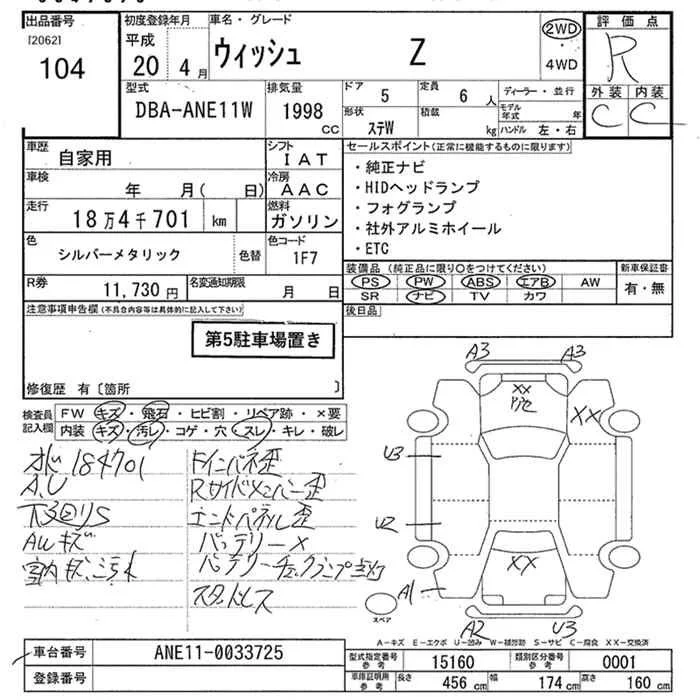 出品番号
[2062]
104
初度登録年月
平成
20 4 月
車名・グレード
ウィッシュ Z
2WD
4WD
評価点
R
外装 内装
C C
型式
DBA-ANE11W
排気量
1998
CC
ドア 5
定員 6 人
形状 ステW
積載 kg
ディーラー・並行
モデル年式 年
ハンドル 左・右
車歴 自家用
シフト IAT
車検 年 月( 日)
冷房 AAC
走行 18万4千701 km
燃料 ガソリン
色 シルバーメタリック 色替
色コード 1F7
R券 11,730 円
名変通知期限 月 日
セールスポイント(正常に機能するものに限ります)
・純正ナビ
・HIDヘッドランプ
・フォグランプ
・社外アルミホイール
・ETC
装備品(純正品に限り○をつけてください)
PS PW ABS エアB AW
SR ナビ TV カワ
新車保証書
有・無
後日品
注意事項申告欄(不具合内容等は具体的に記入して下さい)
第5駐車場置き
修復歴 有〔箇所 〕
検査員記入欄
FW キズ・飛石・ヒビ割・リペア跡・×要
内装 キズ・汚レ・コゲ・穴・スレ・キレ・破レ
184701
A,U
下回りS
AWキズ
室内キズ、汚れ
ドインパネ歪
Rサイドメンバー歪
エンドパネル歪
バッテリー×
バッテリーチェックランプ点灯
スタッドレス
A3 A3
XX
XX
U3
U2
XX
A1
A2 U3
スペア
A-キズ E-エクボ U-凹み W-補修跡 S-サビ C-腐食 XX-交換済
車台番号 ANE11-0033725
登録番号
型式指定番号 参考 15160
類別区分番号 参考 0001
車庫証明用 参考
長さ 456 cm
幅 174 cm
高さ 160 cm